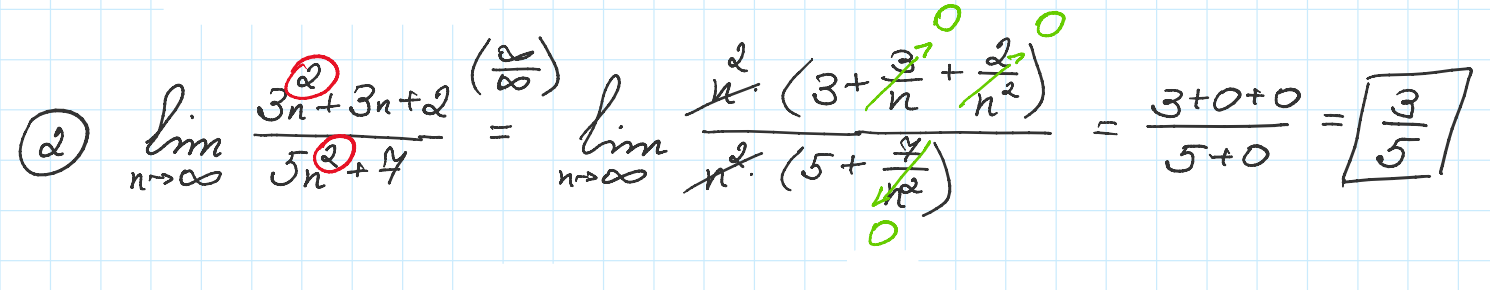 ② lim n→∞ (3n² + 3n + 2)/(5n² + 7) (∞/∞) = lim n→∞ (n² · (3 + 3/n + 2/n²))/(n² · (5 + 7/n²)) = (3+0+0)/(5+0) = 3/5
0 0
0